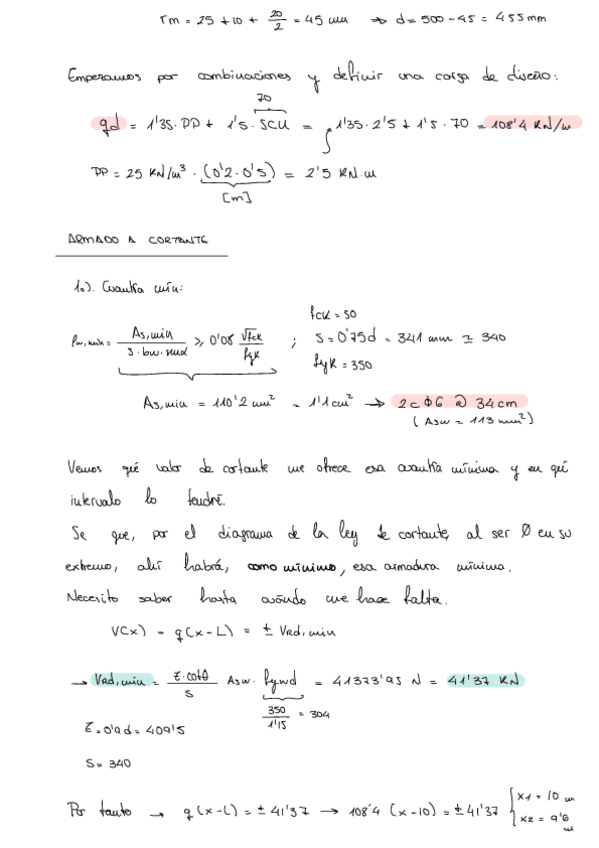 rm = 25 + 10 + 20/2 = 45 mm → d = 500 - 45 = 455 mm
Empezamos por combinaciones y definir una carga de diseño:
70
qd = 1'35 · PP + 1'5 · SCU = ∫ 1'35 · 2'5 + 1'5 · 70 = 108'4 KN/m
PP = 25 KN/m³ · (0'2 · 0'5) = 2'5 KN·m
[m]
ARMADO A CORTANTE
1º). Cuantía mín:
fck = 50
ρw,min = As,min / s · bw · sen α ≥ 0'08 √fck / fyk ; s = 0'75d = 341 mm ≃ 340
fyk = 350
As,min = 110'2 mm² = 1'1 cm² → 2c Φ6 @ 34cm
(Asw = 113 mm²)
Vemos qué valor de cortante me ofrece esa cuantía mínima y en qué
intervalo lo tendré.
Se que, por el diagrama de la ley de cortante, al ser 0 en su
extremo, ahí habrá, como mínimo, esa armadura mínima.
Necesito saber hasta cuándo me hace falta.
V(x) = q(x-L) = ± Vrd,min
→ Vrd,min = z · cotθ / s Asw · fywd = 41373'95 N = 41'37 KN
350 / 1'15 = 304
z = 0'9d = 409'5
s = 340
Por tanto → q(x-L) = ± 41'37 → 108'4 (x-10) = ± 41'37 { x1 = 10 m
x2 = 9'6 m